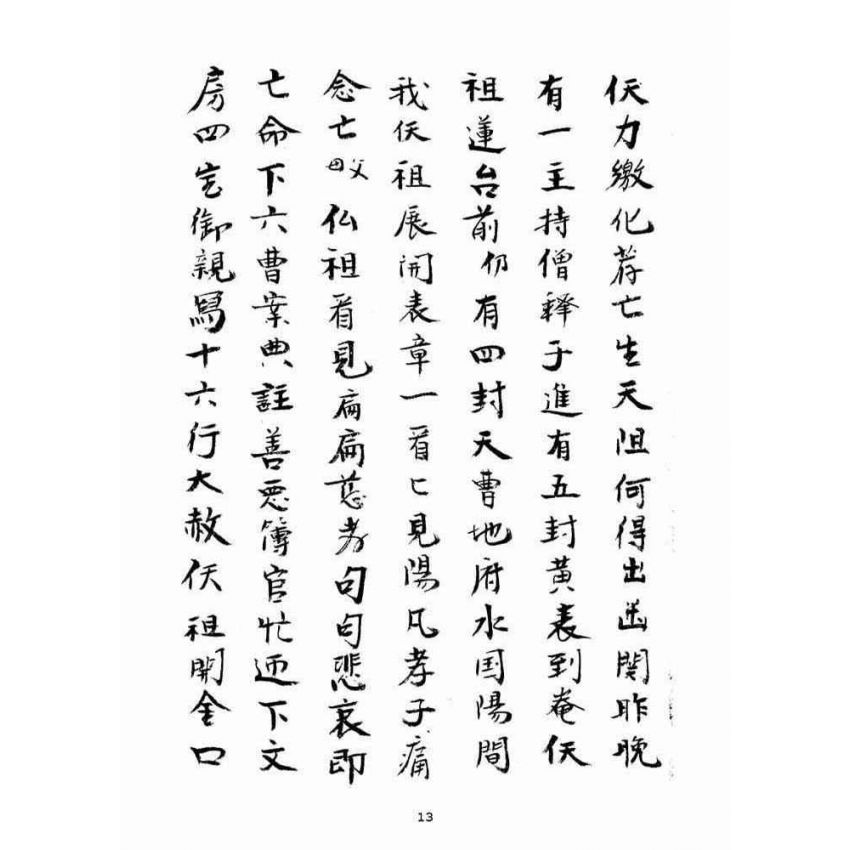 仸力繳化荐亡生天阻何得出関昨晚
有一主持僧釋于進有五封黃表到庵仸
祖蓮台前仍有四封天曹地府水国陽間
我仸祖展開表章一看匕見陽凡孝子痛
念亡母父仏祖看見扁扁慈孝句句悲哀即
亡命下六曹案典註善悪簿官忙迊下文
房四宝御親寫十六行大赦仸祖開金口
13